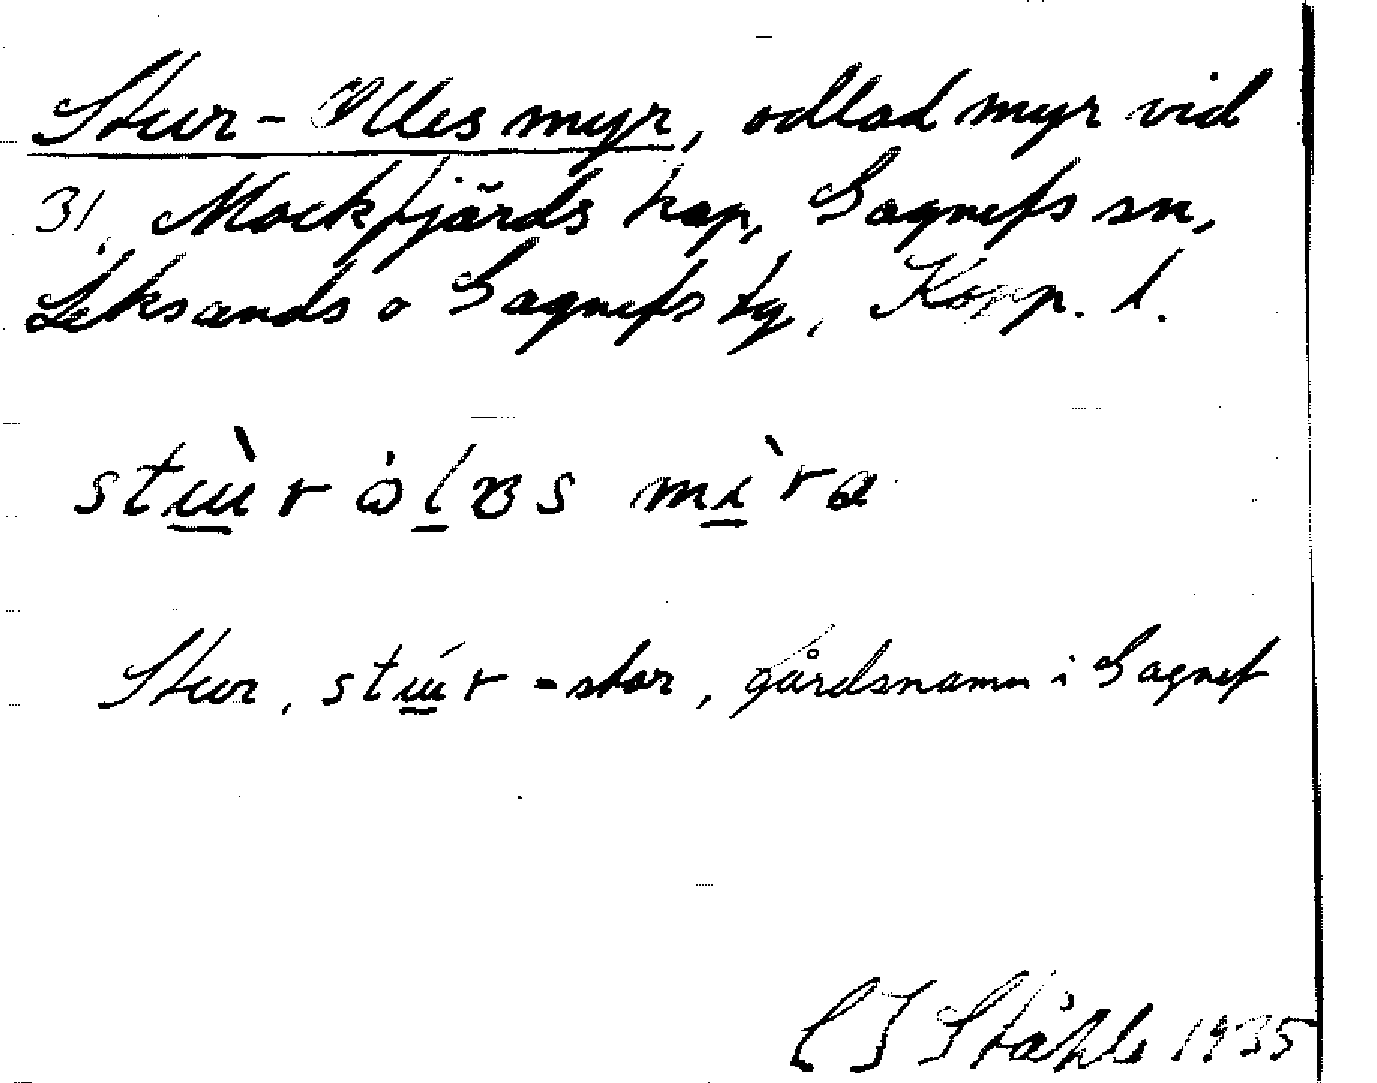 Stur-Olles myr, odlad myr vid
31, Mockfjärds kap, Gagnefs sn,
Leksands o Gagnefs tg, Kopp. l.
stɯ̲̀r ȯl̲ɐs mì̲ra
Stur, stɯ̲́r - stor, gårdsnamn i Gagnef
C I Ståhle 1935